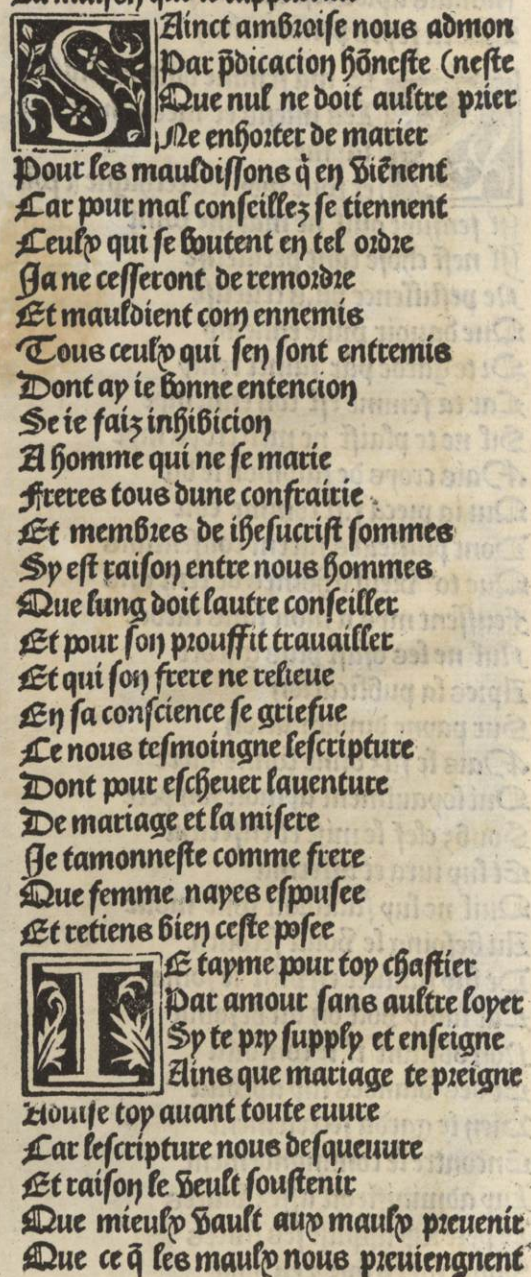 SAinct ambroise nous admon
Par p̄dicacion hōneste (neste
Que nul ne doit aultre prier
Ne enhorter de marier
Pour les mauldissons q̄ en viēnent
Car pour mal conseillez se tiennent
Ceulx qui se boutent en tel ordre
Ja ne cesseront de remordre
Et mauldient com ennemis
Tous ceulx qui sen sont entremis
Dont ay ie bonne entencion
Se ie faiz inhibicion
A homme qui ne se marie
Freres tous dune confrairie
Et membres de ihesucrist sommes
Sy est raison entre nous hommes
Que lung doit lautre conseiller
Et pour son prouffit trauailler
Et qui son frere ne relieue
En sa conscience se griefue
Ce nous tesmoingne lescripture
Dont pour escheuer lauenture
De mariage et la misere
Je tamonneste comme frere
Que femme nayes espousee
Et retiens bien ceste posee
IE tayme pour toy chastier
Par amour sans aultre loyer
Sy te pry supply et enseigne
Ains que mariage te preigne
Aduise toy auant toute euure
Car lescripture nous desqueuure
Et raison le veult soustenir
Que mieulx vault aux maulx preuenir
Que ce q̄ les maulx nous preuiengnent